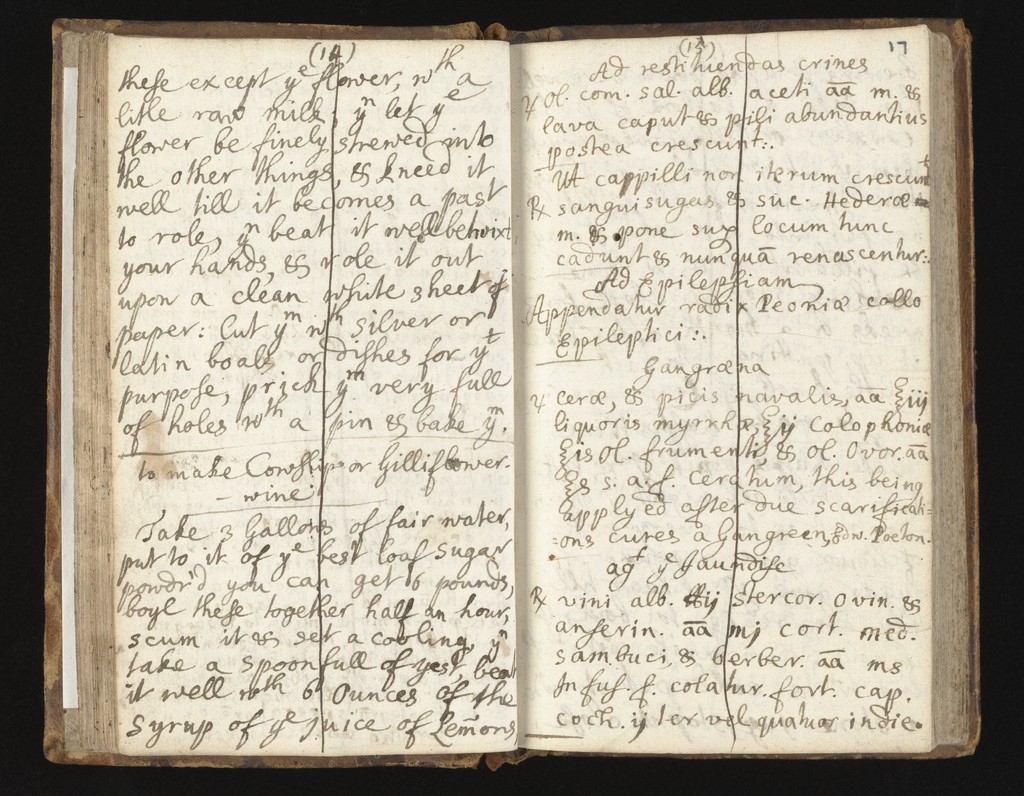 (14)
these except yᵉ flower, wᵗʰ a
litle raw milk, yⁿ let yᵉ
flower be finely strewed into
the other things, & knead it
well till it becomes a past
to role, yⁿ beat it well betwixt
your hands, & role it out
upon a clean white sheet of
paper: Cut yᵐ wᵗʰ silver or
latin boals or dishes for yᵗ
purpose, prick yᵐ very full
of holes wᵗʰ a pin & bake yᵐ.
to make Cowslip or Gilliflower-
- wine
Take 3 Gallons of fair water,
put to it of yᵉ best loaf sugar
powdr'd you can get 6 pounds,
boyl these together half an hour,
scum it & set a cooling, yⁿ
take a spoonfull of yest, beat
it well wᵗʰ 6 Ounces of the
syrup of yᵉ juice of Lemons
(15)
17
Ad restituendas crines
℞ Ol. com. sal. alb. aceti āā m. &
lava caput & pili abundantius
postea crescunt:.
Ut cappilli non iterum crescunt
℞ sanguisugas & suc. Hederæ
m. & pone sup locum tunc
cadunt & nunquā renascentur:.
Ad Epilepsiam
Appendatur radix Peoniæ collo
Epileptici:.
Gangræna
℞ ceræ, & picis navalis, āā ℥iij
liquoris myrrhæ, ℥ij colophoniæ
℥is Ol. frumenti, & Ol. Ovor. āā
℥s s. a. f. ceratum, this being
applyed after due scarificati-
=ons cures a Gangreen, &dr. Poeton.
agᵗ yᵉ Jaundise
℞ vini alb. ℔ij stercor. Ovin. &
anserin. āā mj cort. med.
sambuci, & berber. āā ms
Infus. f. colatur. fort. cap.
coch. ij ter vel quatuor indie.